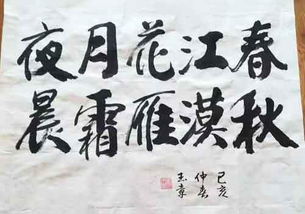 春江花月夜
秋漠雁霜晨
己亥
仲春